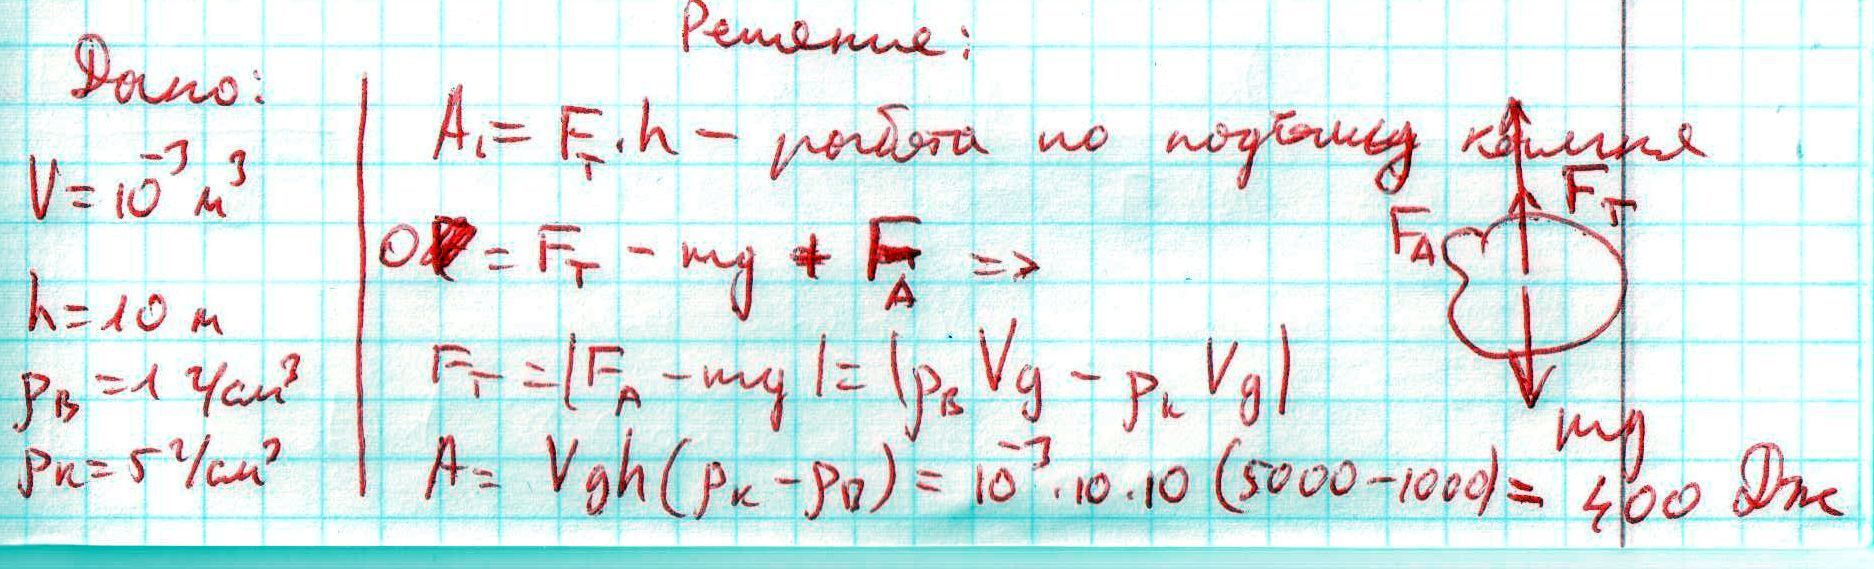 Решение:
Дано:
V = 10⁻³ м³
h = 10 м
ρВ = 1 г/см³
ρк = 5 г/см³
A₁ = FТ · h – работа по подъёму камня
0 = FТ – mg + FA =>
FТ = |FA – mg| = |ρВ Vg – ρк Vg|
A = Vgh(ρк – ρВ) = 10⁻³ · 10 · 10 (5000 – 1000) = 400 Дж
FТ
FA
mg